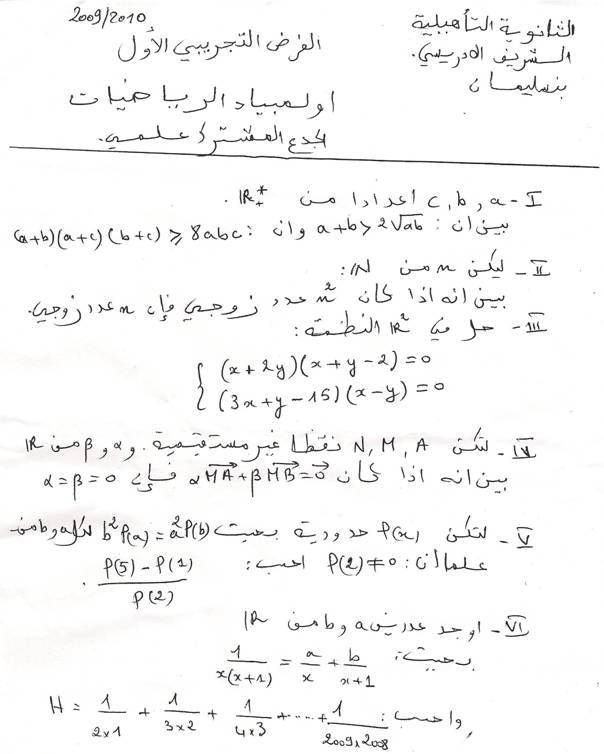 الثانوية التأهيلية
الشريف الادريسي.
بنسليمان
2009/2010
الفرض التجريبي الأول
اولمبياد الرياضيات
الجدع المشترك علمي.
I - a, b, c اعدادا من IR*+ .
بين ان : a+b > 2√ab وان : (a+b)(a+c)(b+c) ≥ 8abc
II - ليكن n من IN :
بين انه اذا كان n² عدد زوجي فإن n عدد زوجي.
III - حل في IR² النظمة :
{ (x+2y)(x+y-2)=0
(3x+y-15)(x-y)=0
IV - لتكن A, M, N نقطا غير مستقيمية . و α و β من IR
بين انه اذا كان αMA→+βMB→=0→ فإن α=β=0
V - لتكن P(x) حدودية بحيث b²P(a)=a²P(b) لكل a و b من
علما ان : P(2)≠0 احسب : (P(5)-P(1))/P(2) .
VI - اوجد عددين a و b من IR
بحيث : 1/(x(x+1)) = a/x + b/(x+1)
واحسب : H = 1/(2×1) + 1/(3×2) + 1/(4×3) + ..... + 1/(2009×2008)